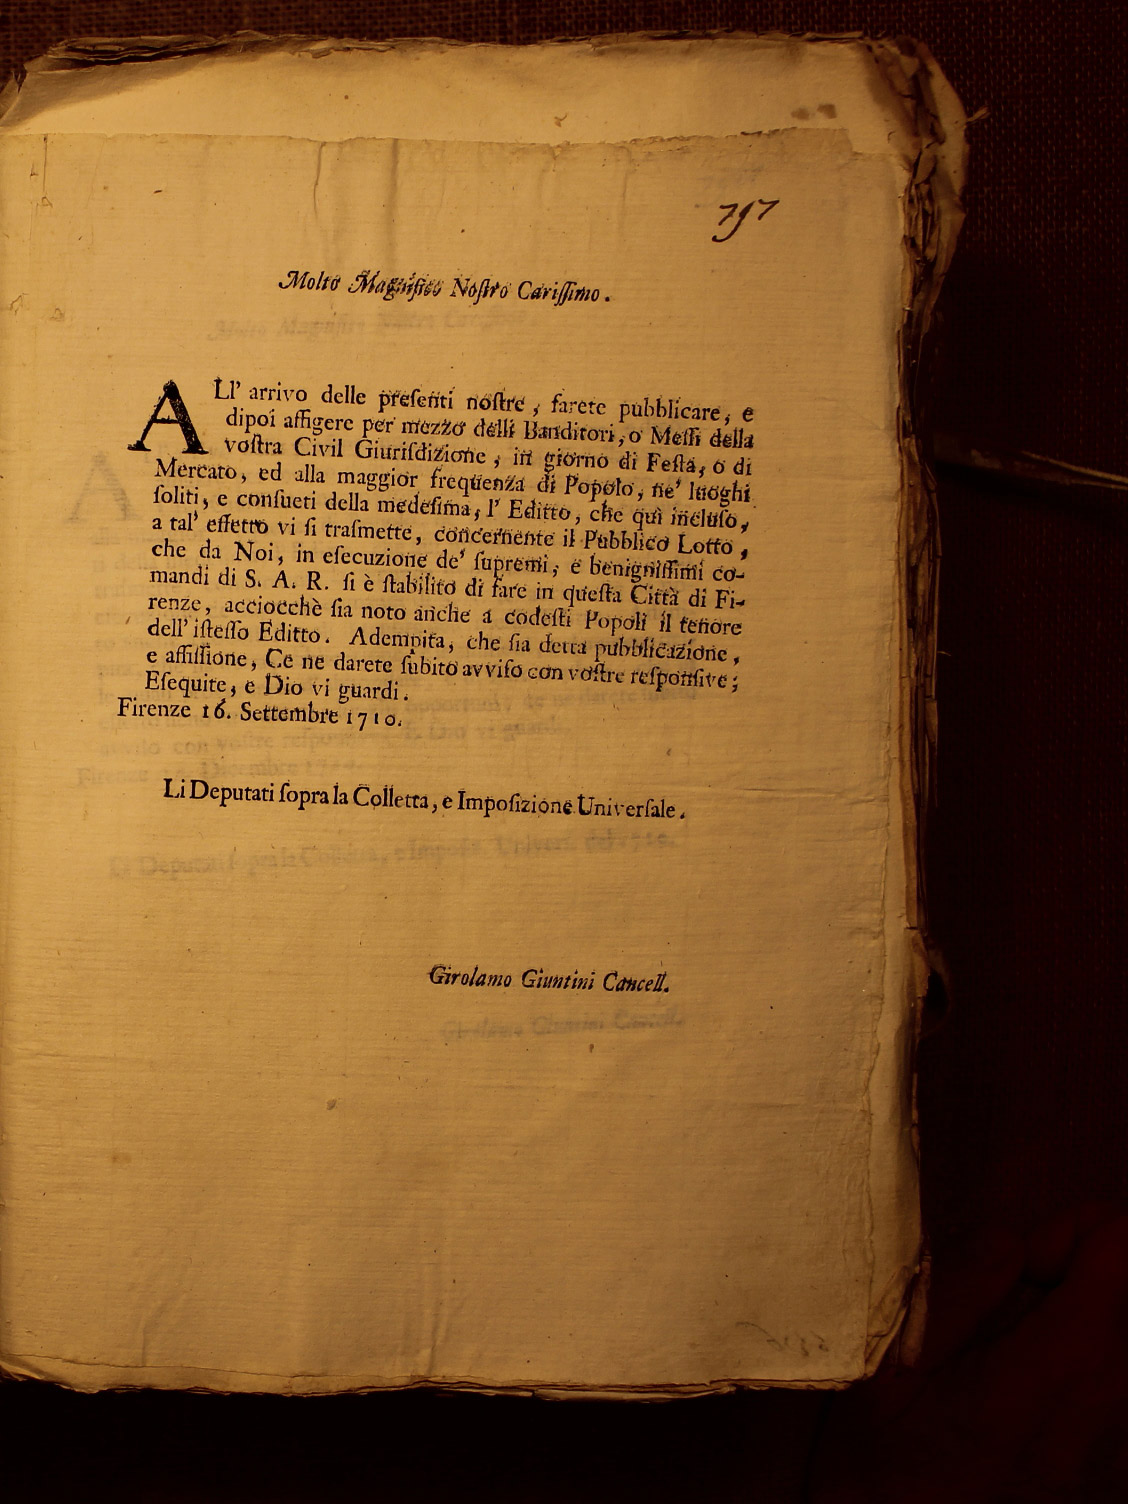 797
Molto Magnifico Noſtro Cariſſimo.
ALl' arrivo delle preſenti noſtre, farete pubblicare, e
dipoi affigere per mezzo delli Banditori, o Meſſi della
voſtra Civil Giuriſdizione, in giorno di Feſta, o di
Mercato, ed alla maggior frequenza di Popolo, ne' luoghi
ſoliti, e conſueti della medeſima, l' Editto, che quì incluſo,
a tal' effetto vi ſi traſmette, concernente il Pubblico Lotto,
che da Noi, in eſecuzione de' ſupremi, e benigniſſimi co-
mandi di S. A. R. ſi è ſtabilito di fare in queſta Città di Fi-
renze, acciocchè ſia noto anche a codeſti Popoli il tenore
dell' iſteſſo Editto. Adempita, che ſia detta pubblicazione,
e affiſſione, Ce ne darete ſubito avviſo con voſtre reſponſive;
Eſequite, e Dio vi guardi.
Firenze 16. Settembre 1710.
Li Deputati ſopra la Colletta, e Impoſizione Univerſale.
Girolamo Giuntini Cancell.